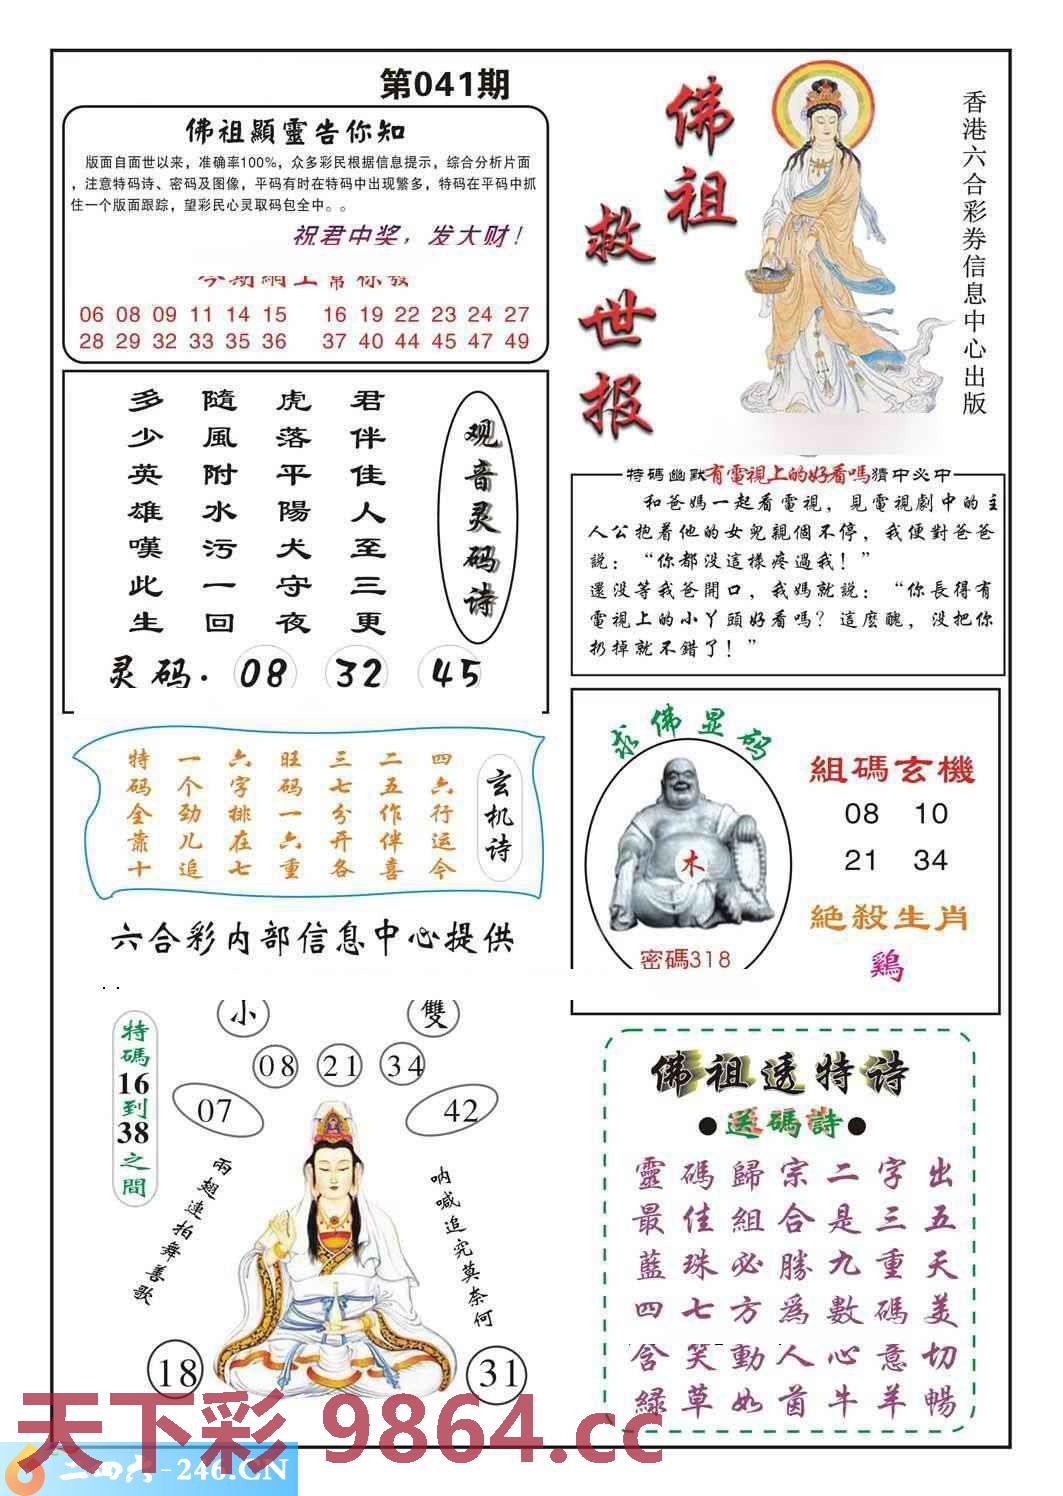 第041期
佛祖顯靈告你知
版面自面世以来，准确率100%，众多彩民根据信息提示，综合分析片面
，注意特码诗、密码及图像，平码有时在特码中出现繁多，特码在平码中抓
住一个版面跟踪，望彩民心灵取码包全中。。
祝君中奖，发大财！
06 08 09 11 14 15 16 19 22 23 24 27
28 29 32 33 35 36 37 40 44 45 47 49
佛祖
救世报
香港六合彩券信息中心出版
观音灵码诗
君伴佳人至三更
虎落平陽犬守夜
隨風附水污一回
多少英雄嘆此生
灵码. 08 32 45
特碼幽默有電視上的好看嗎猜中必中
和爸媽一起看電視，見電視劇中的主
人公抱着他的女兒親個不停，我便對爸爸
説：“你都没這樣疼過我！”
還没等我爸開口，我媽就説：“你長得有
電視上的小丫頭好看嗎？這麽醜，没把你
扔掉就不錯了！”
玄机诗
四六行运今
二五作伴喜
三七分开各
旺码一六重
六字排在七
一个劲儿追
特码全靠十
六合彩内部信息中心提供
求佛显码
木
密碼318
組碼玄機
08 10
21 34
絶殺生肖
鷄
小 雙
08 21 34
07 42
特碼16到38之間
兩翅連拍舞善歌
呐喊追究莫奈何
18 31
佛祖透特诗
●送碼詩●
靈碼歸宗二字出
最佳組合是三五
藍珠必勝九重天
四七方爲數碼美
含笑動人心意切
緑草如茵牛羊暢
天下彩 9864.cc
二四六-246.CN